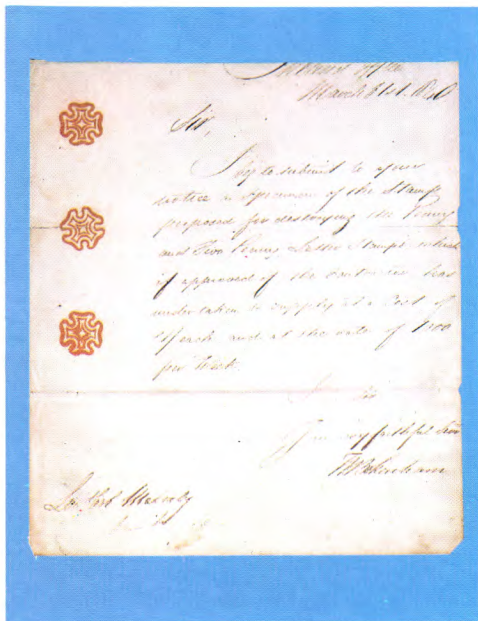 March 31st. 1840
Sir,
I beg to submit to your
notice a specimen of the Stamp
proposed for destroying the Penny
and Two Penny Letter Stamps which
if approved of the Contractor has
undertaken to supply at a Cost of
each and at the rate of 1000
per Week.
Sir
faithful